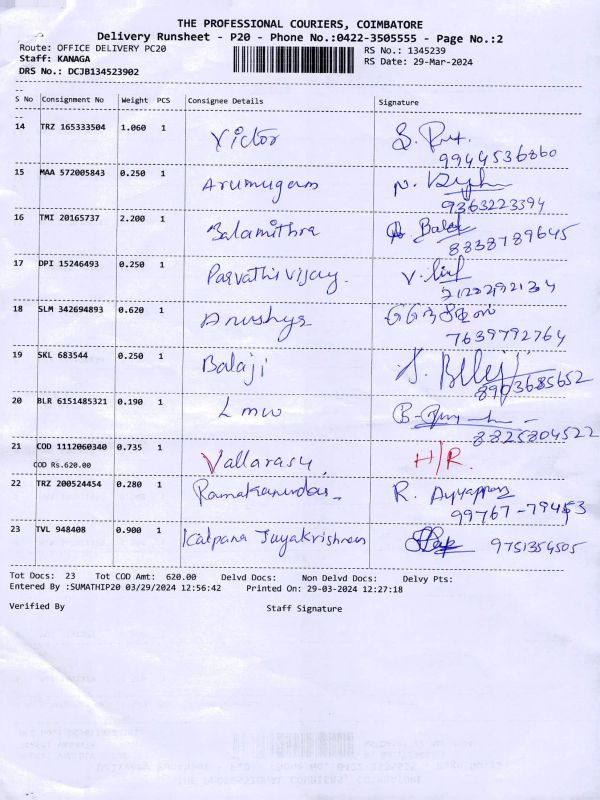 THE PROFESSIONAL COURIERS, COIMBATORE
Delivery Runsheet - P20 - Phone No.:0422-3505555 - Page No.:2
Route: OFFICE DELIVERY PC20 RS No.: 1345239
Staff: KANAGA RS Date: 29-Mar-2024
DRS No.: DCJB134523902
S No Consignment No Weight PCS Consignee Details Signature
14 TRZ 165333504 1.060 1 Victor S.
9944536860
15 MAA 572005843 0.250 1 Arumugam N.
9363223394
16 TMI 20165737 2.200 1 Balamithra Balaji
8838789645
17 DPI 15246493 0.250 1 Parvathi vijay. V.
18 SLM 342694893 0.620 1 Anushya
7639792764
19 SKL 683544 0.250 1 Balaji S. Balaji
8903685652
20 BLR 6151485321 0.190 1 Lmw B.
8825804522
21 COD 1112060340 0.735 1 Vallarasu H/R.
COD Rs.620.00
22 TRZ 200524454 0.280 1 R. Ayyappan
99767-79453
23 TVL 948408 0.900 1 Kalpana Jayakrishnan 9751354505
Tot Docs: 23 Tot COD Amt: 620.00 Delvd Docs: Non Delvd Docs: Delvy Pts:
Entered By :SUMATHIP20 03/29/2024 12:56:42 Printed On: 29-03-2024 12:27:18
Verified By Staff Signature